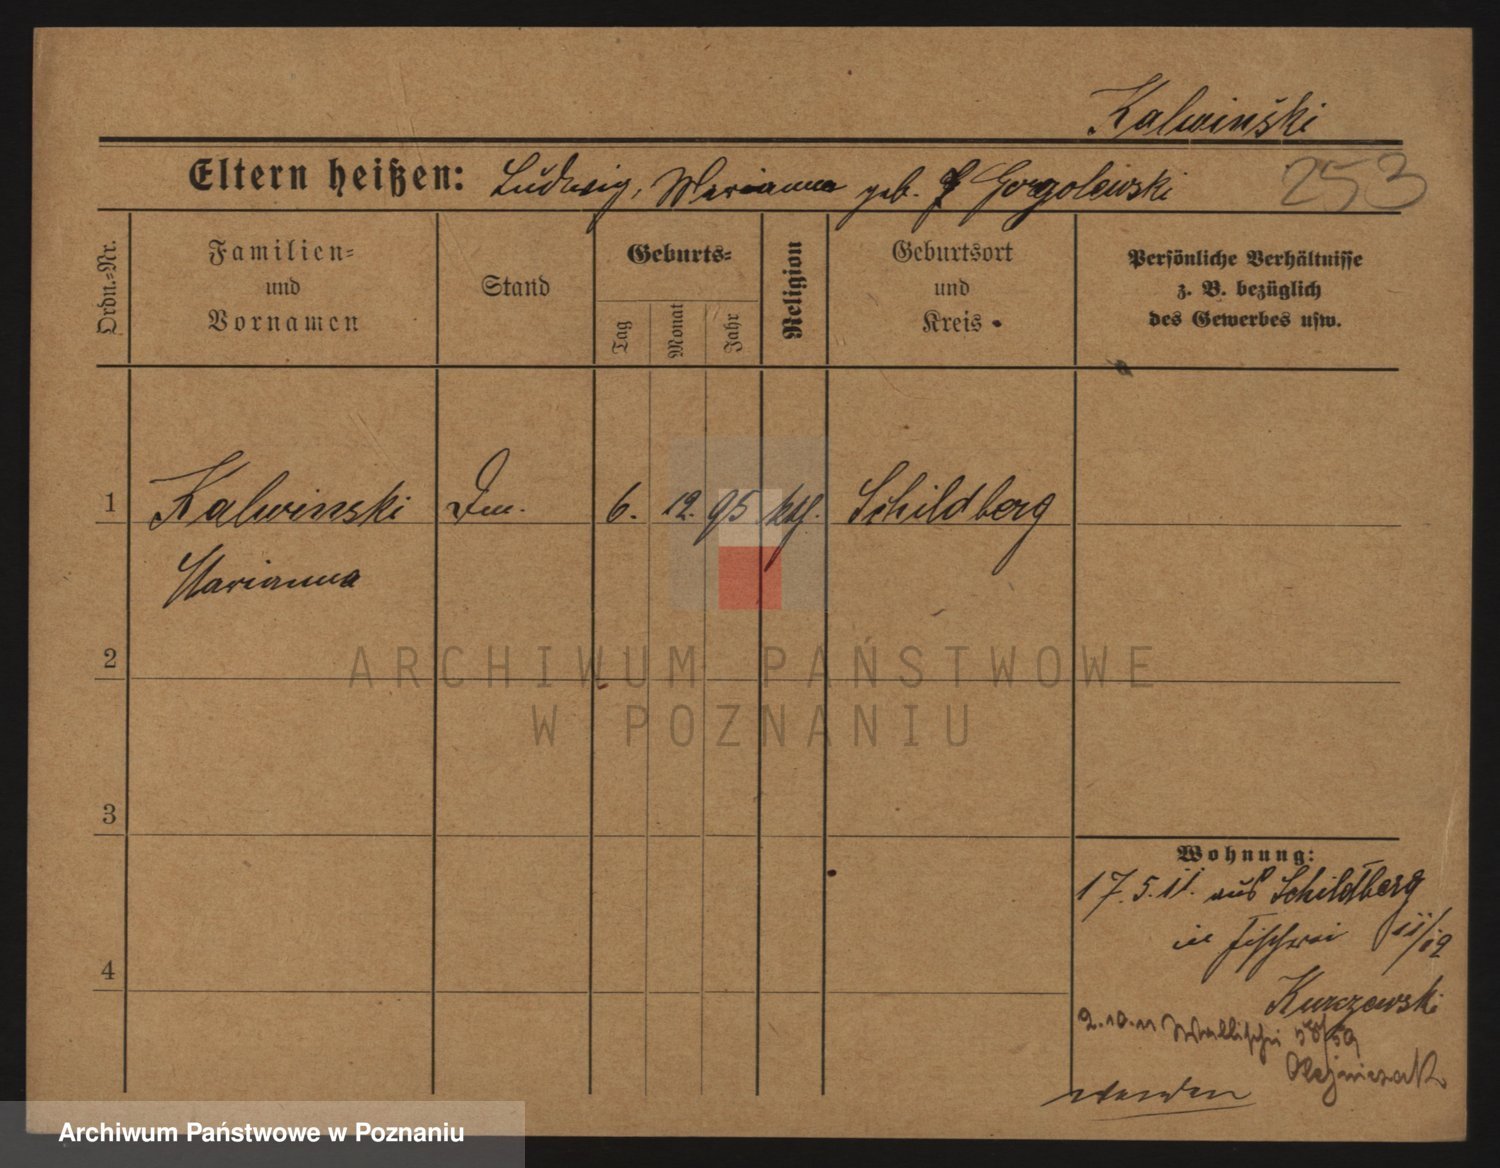 Kalwinški
Eltern heißen: Ludwig, Marianna geb. Gorgolewski
253
Ordn.-Nr.
Familien-
und
Vornamen
Stand
Geburts-
Tag
Monat
Jahr
Religion
Geburtsort
und
Kreis
Persönliche Verhältnisse
z. B. bezüglich
des Gewerbes usw.
1 Kalwinski 6. 12. 95 kth. Schildberg
Marianna
2
3
4
Wohnung:
17.5.11. aus Schildberg
in Fischerei 11/12
Kurczewski
2.10.11 Wallischei 58/59
Olejniczak
wenden
ARCHIWUM PAŃSTWOWE
W POZNANIU
Archiwum Państwowe w Poznaniu